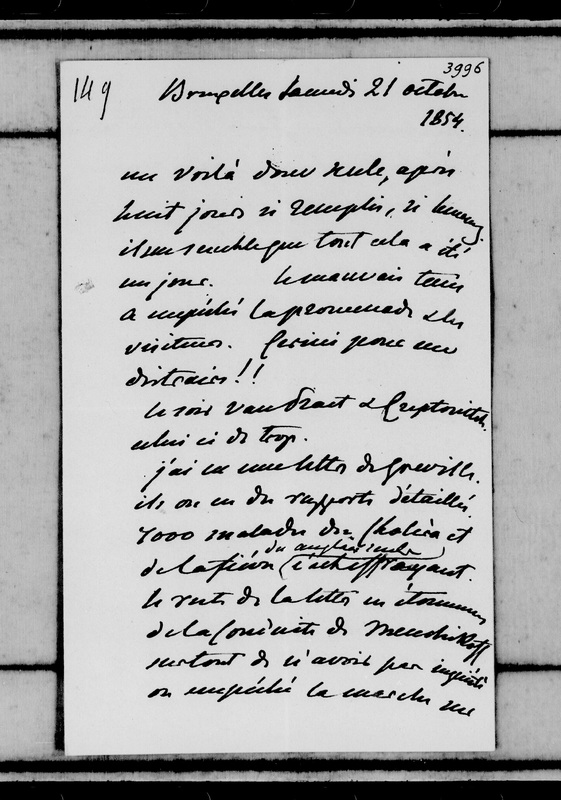 3996
149 Bruxelles Samedi 21 octobre
1854.
me voilà donc seule, après
huit jours si remplis, si heureux
il me semble que tout cela a été
un jour. le mauvais tems
a empêché la promenade & les
visiteurs. Cerini pour me
distraire !!
le soir Van Straet & Creptovitch.
celui ci de trop.
j'ai eu une lettre de Greville.
ils ont eu des rapports détaillés.
7000 malades du Choléra et
de la fièvre (c'est effrayant.
des anglais seuls)
le reste de la lettre en étonnement
de la Conduite de Menchikoff
surtout de n'avoir pas inquiété
ou empêché la marche sur